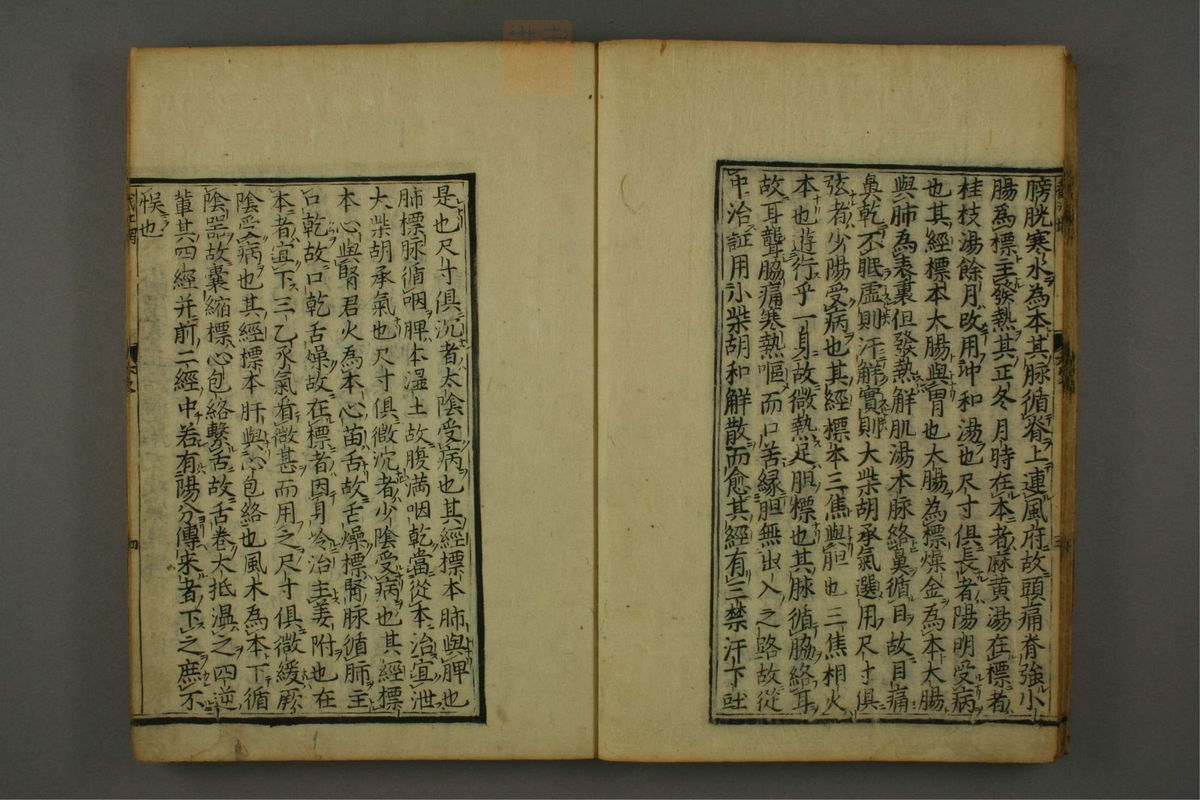 膀胱寒水為本其脉循脊上連風府故頭痛脊強小
腸為標主發熱其正冬月時在本者麻黄湯在標者
桂枝湯餘月改用冲和湯也尺寸俱長者陽明受病
也其經標本大腸與胃也大腸為標燥金為本大腸
與肺為表裏但發熱解肌湯本脉絡鼻循目故目痛
鼻乾不眠虚則汗解實則大柴胡承氣選用尺寸俱
弦者少陽受病也其經標本三焦與胆也三焦相火
本也遊行乎一身故微熱足胆標也其脉循脇絡耳
故耳聾脇痛寒熱嘔而口苦縁胆無出入之路故從
中治証用小柴胡和解散而愈其經有三禁汗下吐
是也尺寸俱沉者太陰受病也其經標本肺與脾也
肺標脉循咽脾本湿土故腹満咽乾當從本治宜泄
大柴胡承氣也尺寸俱微沉者少陰受病也其經標
本心與腎君火為本心苗舌故舌燥標腎脉循肺主
口乾故口乾舌燥故在標者因身冷治主姜附也在
本者宜下三乙承氣看微甚而用之尺寸俱微緩厥
陰受病也其經標本肝與心包絡也風木為本下循
陰器故嚢縮標心包絡繋舌故舌卷大抵温之四逆
軰其四經并前二經中若有陽分傳來者下之庶不
悞也